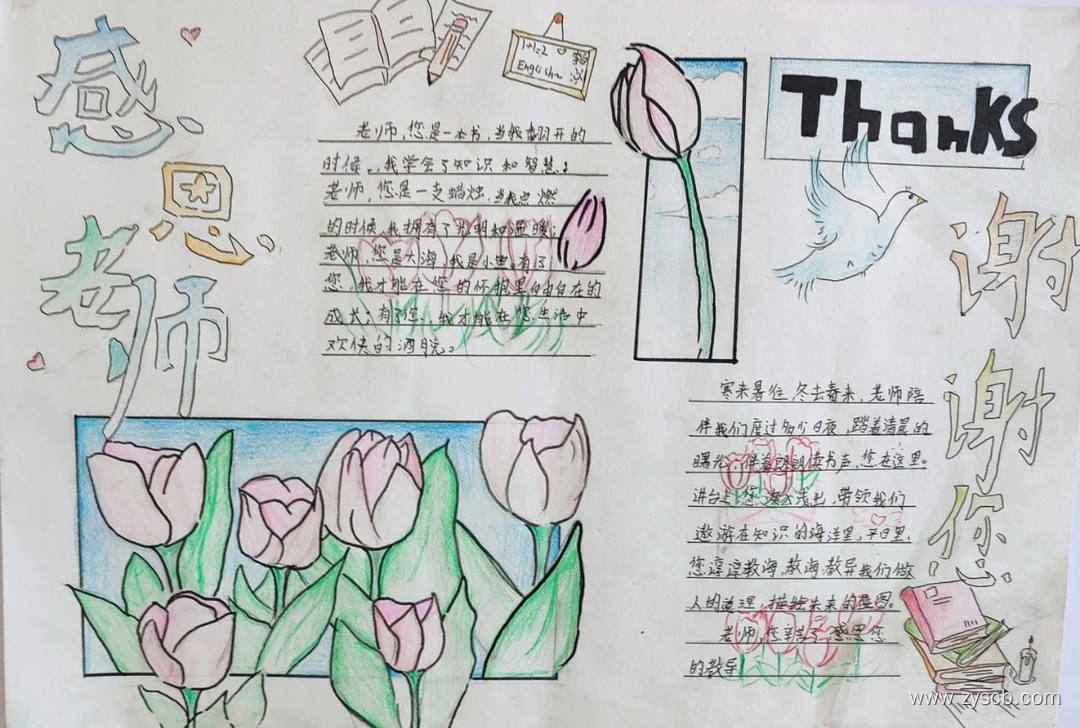 感恩
老师
1+1=2
English
老师,您是一本书,当我翻开的
时候。,我学会了知识和智慧。
老师,您是一支蜡烛,当我点燃
的时候,我拥有了光明和温暖;
老师,您是大海,我是小鱼,有了
您,我才能在您的怀抱里自由自在的
成长;有了您,我才能在您生活中
欢快的洒脱。
Thanks
谢谢你
寒来暑往,冬去春来,老师陪
伴我们度过多少日夜,踏着清晨的
曙光,伴着朗朗读书声,您在这里。
讲台上,您深入浅出,带领我们
遨游在知识的海洋里,平日里,
您谆谆教海,教海,教导我们做
人的道理,描绘未来的蓝图。
老师,您辛苦了,感恩您
的教导
www.zyscb.com